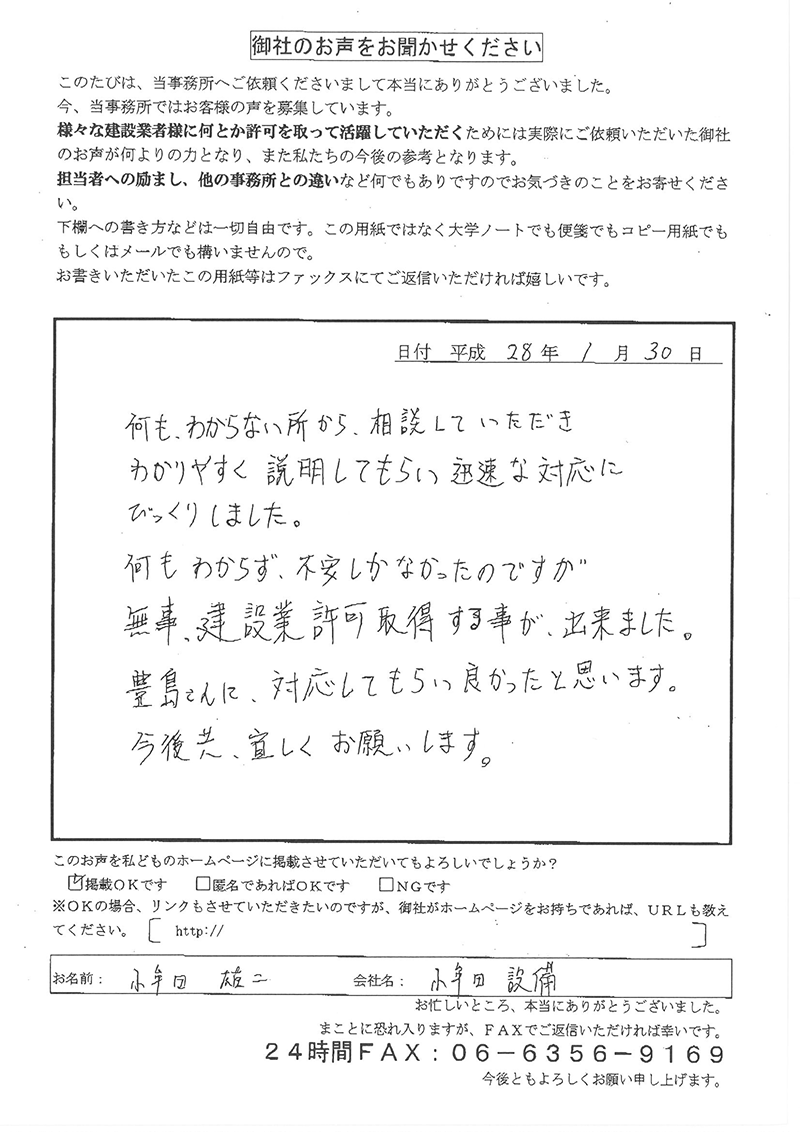 御社のお声をお聞かせください
このたびは、当事務所へご依頼くださいまして本当にありがとうございました。
今、当事務所ではお客様の声を募集しています。
様々な建設業者様に何とか許可を取って活躍していただくためには実際にご依頼いただいた御社
のお声が何よりの力となり、また私たちの今後の参考となります。
担当者への励まし、他の事務所との違いなど何でもありですのでお気づきのことをお寄せくださ
い。
下欄への書き方などは一切自由です。この用紙ではなく大学ノートでも便箋でもコピー用紙でも
もしくはメールでも構いませんので。
お書きいただいたこの用紙等はファックスにてご返信いただければ嬉しいです。
日付 平成 28 年 1 月 30 日
何も、わからない所から、相談していただき
わかりやすく 説明してもらい 迅速な対応に
びっくりしました。
何もわからず、不安しかなかったのですが
無事、建設業許可取得する事が、出来ました。
豊島さんに、対応してもらい良かったと思います。
今後共、宜しくお願いします。
このお声を私どものホームページに掲載させていただいてもよろしいでしょうか？
☑掲載ＯＫです □匿名であればＯＫです □ＮＧです
※ＯＫの場合、リンクもさせていただきたいのですが、御社がホームページをお持ちであれば、ＵＲＬも教え
てください。 [ http:// ]
お名前： 小牟田 雄二 会社名： 小牟田 設備
お忙しいところ、本当にありがとうございました。
まことに恐れ入りますが、ＦＡＸでご返信いただければ幸いです。
２４時間ＦＡＸ：０６－６３５６－９１６９
今後ともよろしくお願い申し上げます。